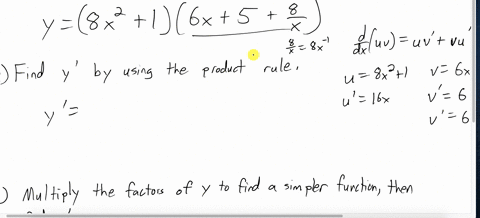 y = (8x² + 1)(6x + 5 + 8/x)
8/x = 8x⁻¹
) Find y' by using the product rule.
y' =
d/dx(uv) = uv' + vu'
u = 8x² + 1 v = 6x
u' = 16x v' = 6
v' = 6
) Multiply the factors of y to find a simpler function, then